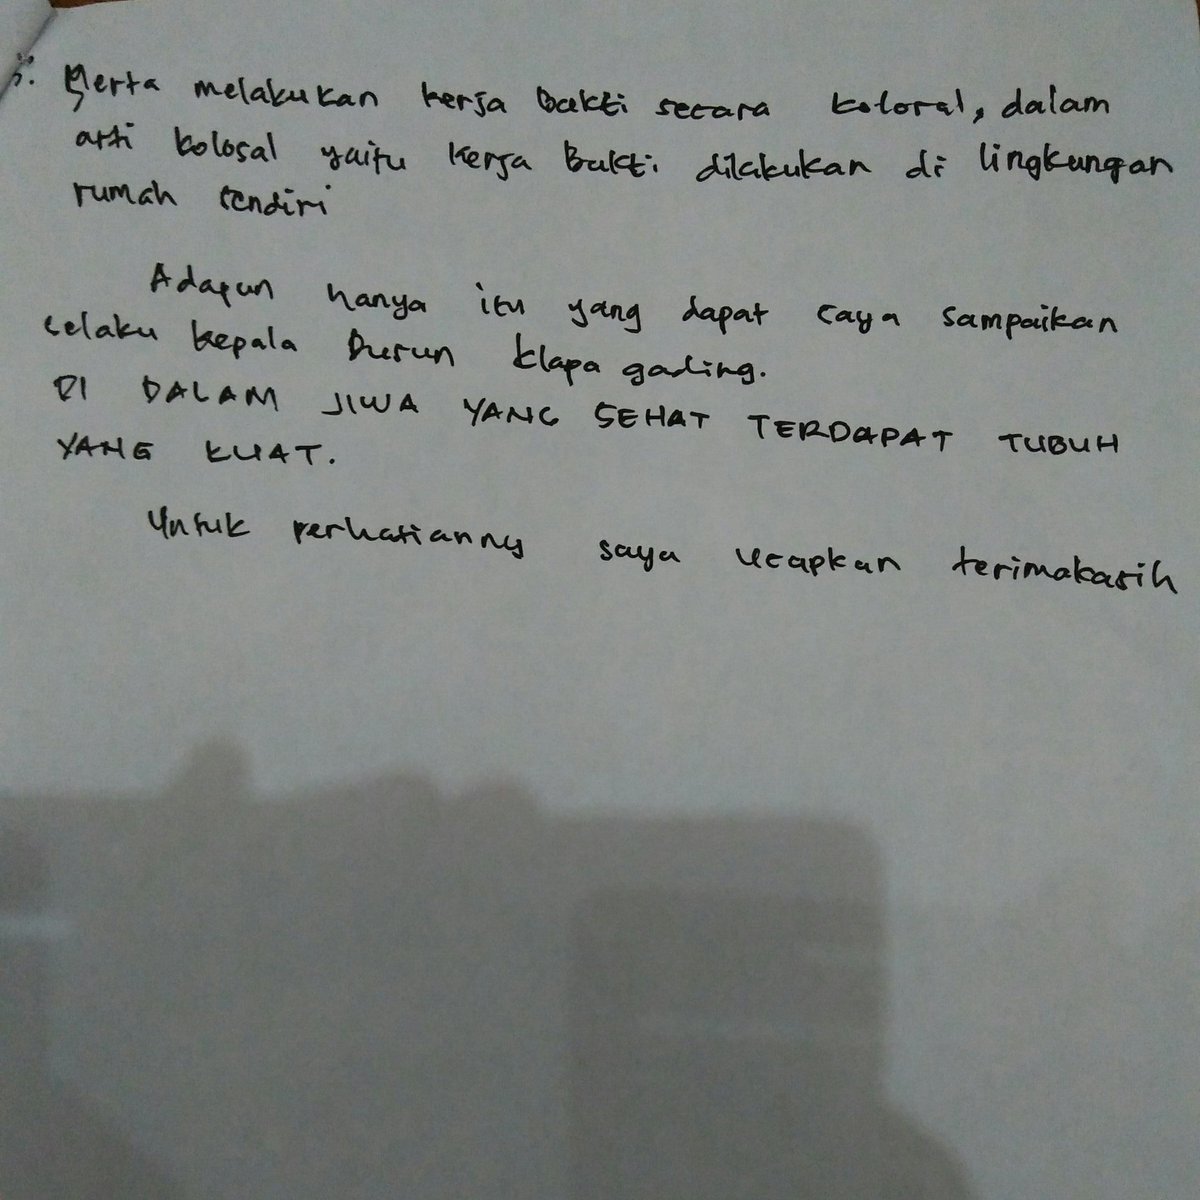 5. Serta melakukan kerja bakti secara kolosal, dalam
arti kolosal yaitu kerja bakti dilakukan di lingkungan
rumah sendiri
Adapun hanya itu yang dapat saya sampaikan
selaku kepala Dusun klapa gading.
DI DALAM JIWA YANG SEHAT TERDAPAT TUBUH
YANG KUAT.
Untuk perhatianny saya ucapkan terimakasih